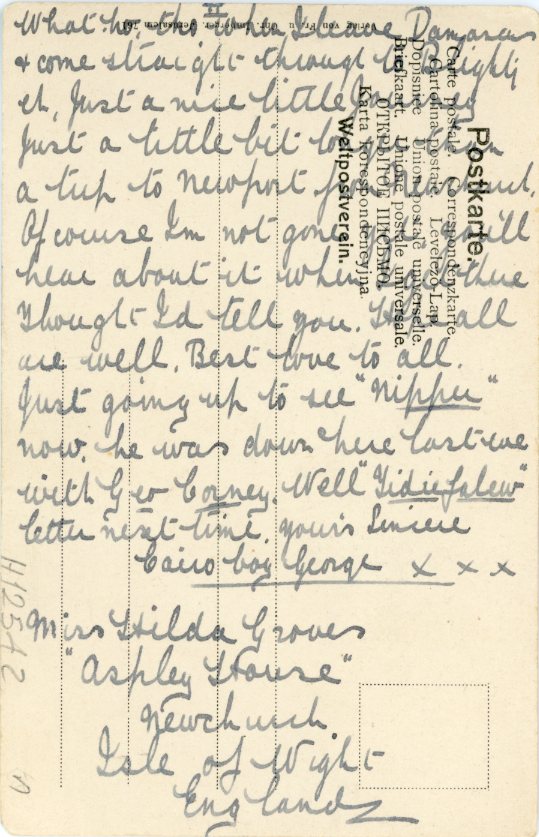 II
What ho. tho when I leave Damascus
& come straight through to Blighty
eh, Just a nice little journey
Just a little bit longer than
a trip to Newport from Newchurch.
Of course Im not gone yet & will
hear about it when I get there
Thought I'd tell you. Hope all
are well. Best love to all.
Just going up to see "Nipper"
now. he was down here last eve
with Geo Corney. Well
letter next time. yours Sincere
Cairo boy George x x x
Miss Hilda Groves
"Aspley House"
Newchurch
Isle of Wight
England
Postkarte.
Carte postale. Correspondenzkarte.
Cartolina postale. Levelező-Lap.
Dopisnice Union postale universelle.
Briefkaart. Unione postale universale.
ОТКРЫТОЕ ПИСЬМО.
Karta korespondencyjna.
Weltpostverein.
Verlag von Jerusalem
H12542